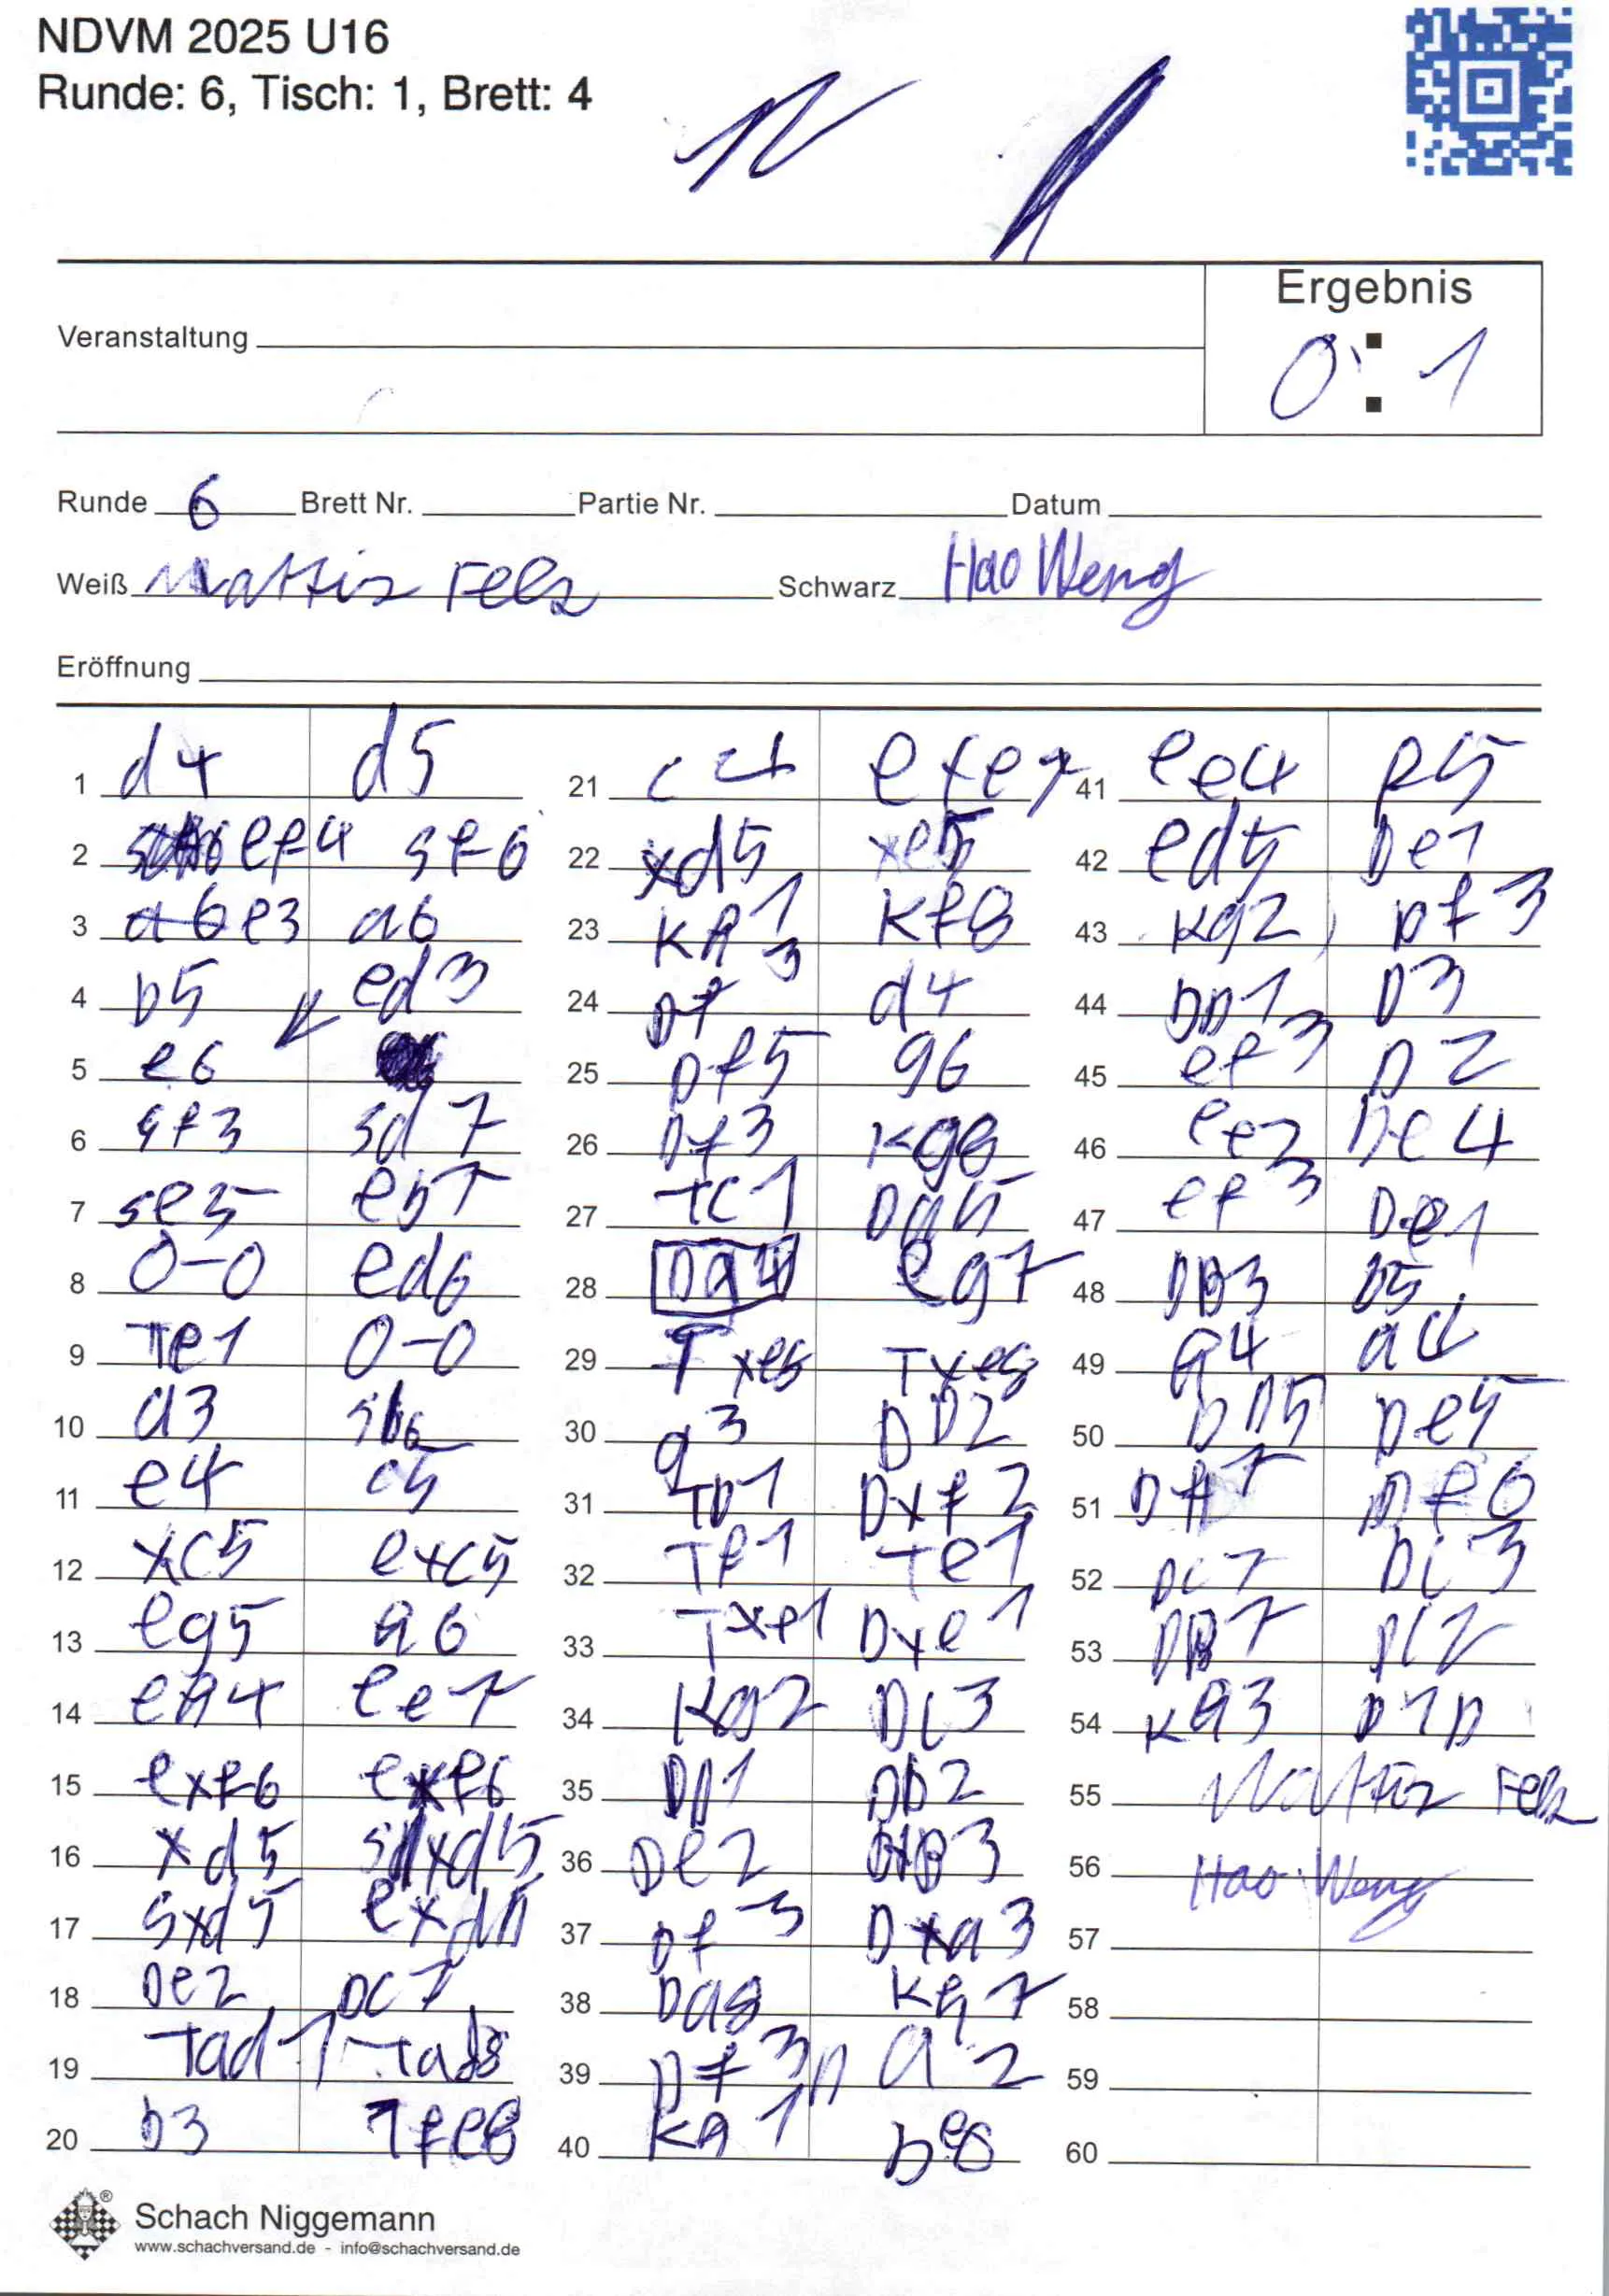 NDVM 2025 U16
Runde: 6, Tisch: 1, Brett: 4
Ergebnis
0 : 1
Veranstaltung
Runde 6 Brett Nr. Partie Nr. Datum
Weiß Mattis Fels Schwarz Hao Weng
Eröffnung
1 d4 d5
2 ef4 sf6
3 e3 a6
4 b5 ed3
5 e6
6 sf3 sd7
7 se5 eb7
8 0-0 ed6
9 Te1 0-0
10 a3
11 e4 c5
12 xc5 exc5
13 eg5 a6
14 eh4 ee7
15 exf6 exf6
16 xd5 sxd5
17 sxd5 exd5
18 De2 DC7
19 Tad1 Tad8
20 b3 Tfe8
21 c4 exe7
22 xd5 xe5
23 Kh1 Kf8
24 Df3 d4
25 Df5 g6
26 Df3 Kg8
27 Tc1 Dg5
28 Dg4 eg7
29 Txe8 Txe8
30 g3 DD2
31 TD1 Dxf2
32 Tf1 Te1
33 Txe1 Dxe1
34 Kg2 Dc3
35 DD1 Db2
36 De2 DxB3
37 Df3 Dxa3
38 Da8 Kh7
39 Df3 a2
40 Kh1 De8
41 ee4 f5
42 ed5 De1
43 Kg2 Df3
44 DD1 D3
45 ef3 D2
46 ee2 De4
47 ef3 De1
48 DB3 b5
49 g4 a4
50 DD5 De5
51 DA7 Df6
52 Dc7 Dc3
53 DB7 Dc2
54 Kg3 D1D
55 Mattis Fels
56 Hao Weng
57
58
59
60
Schach Niggemann
www.schachversand.de - info@schachversand.de